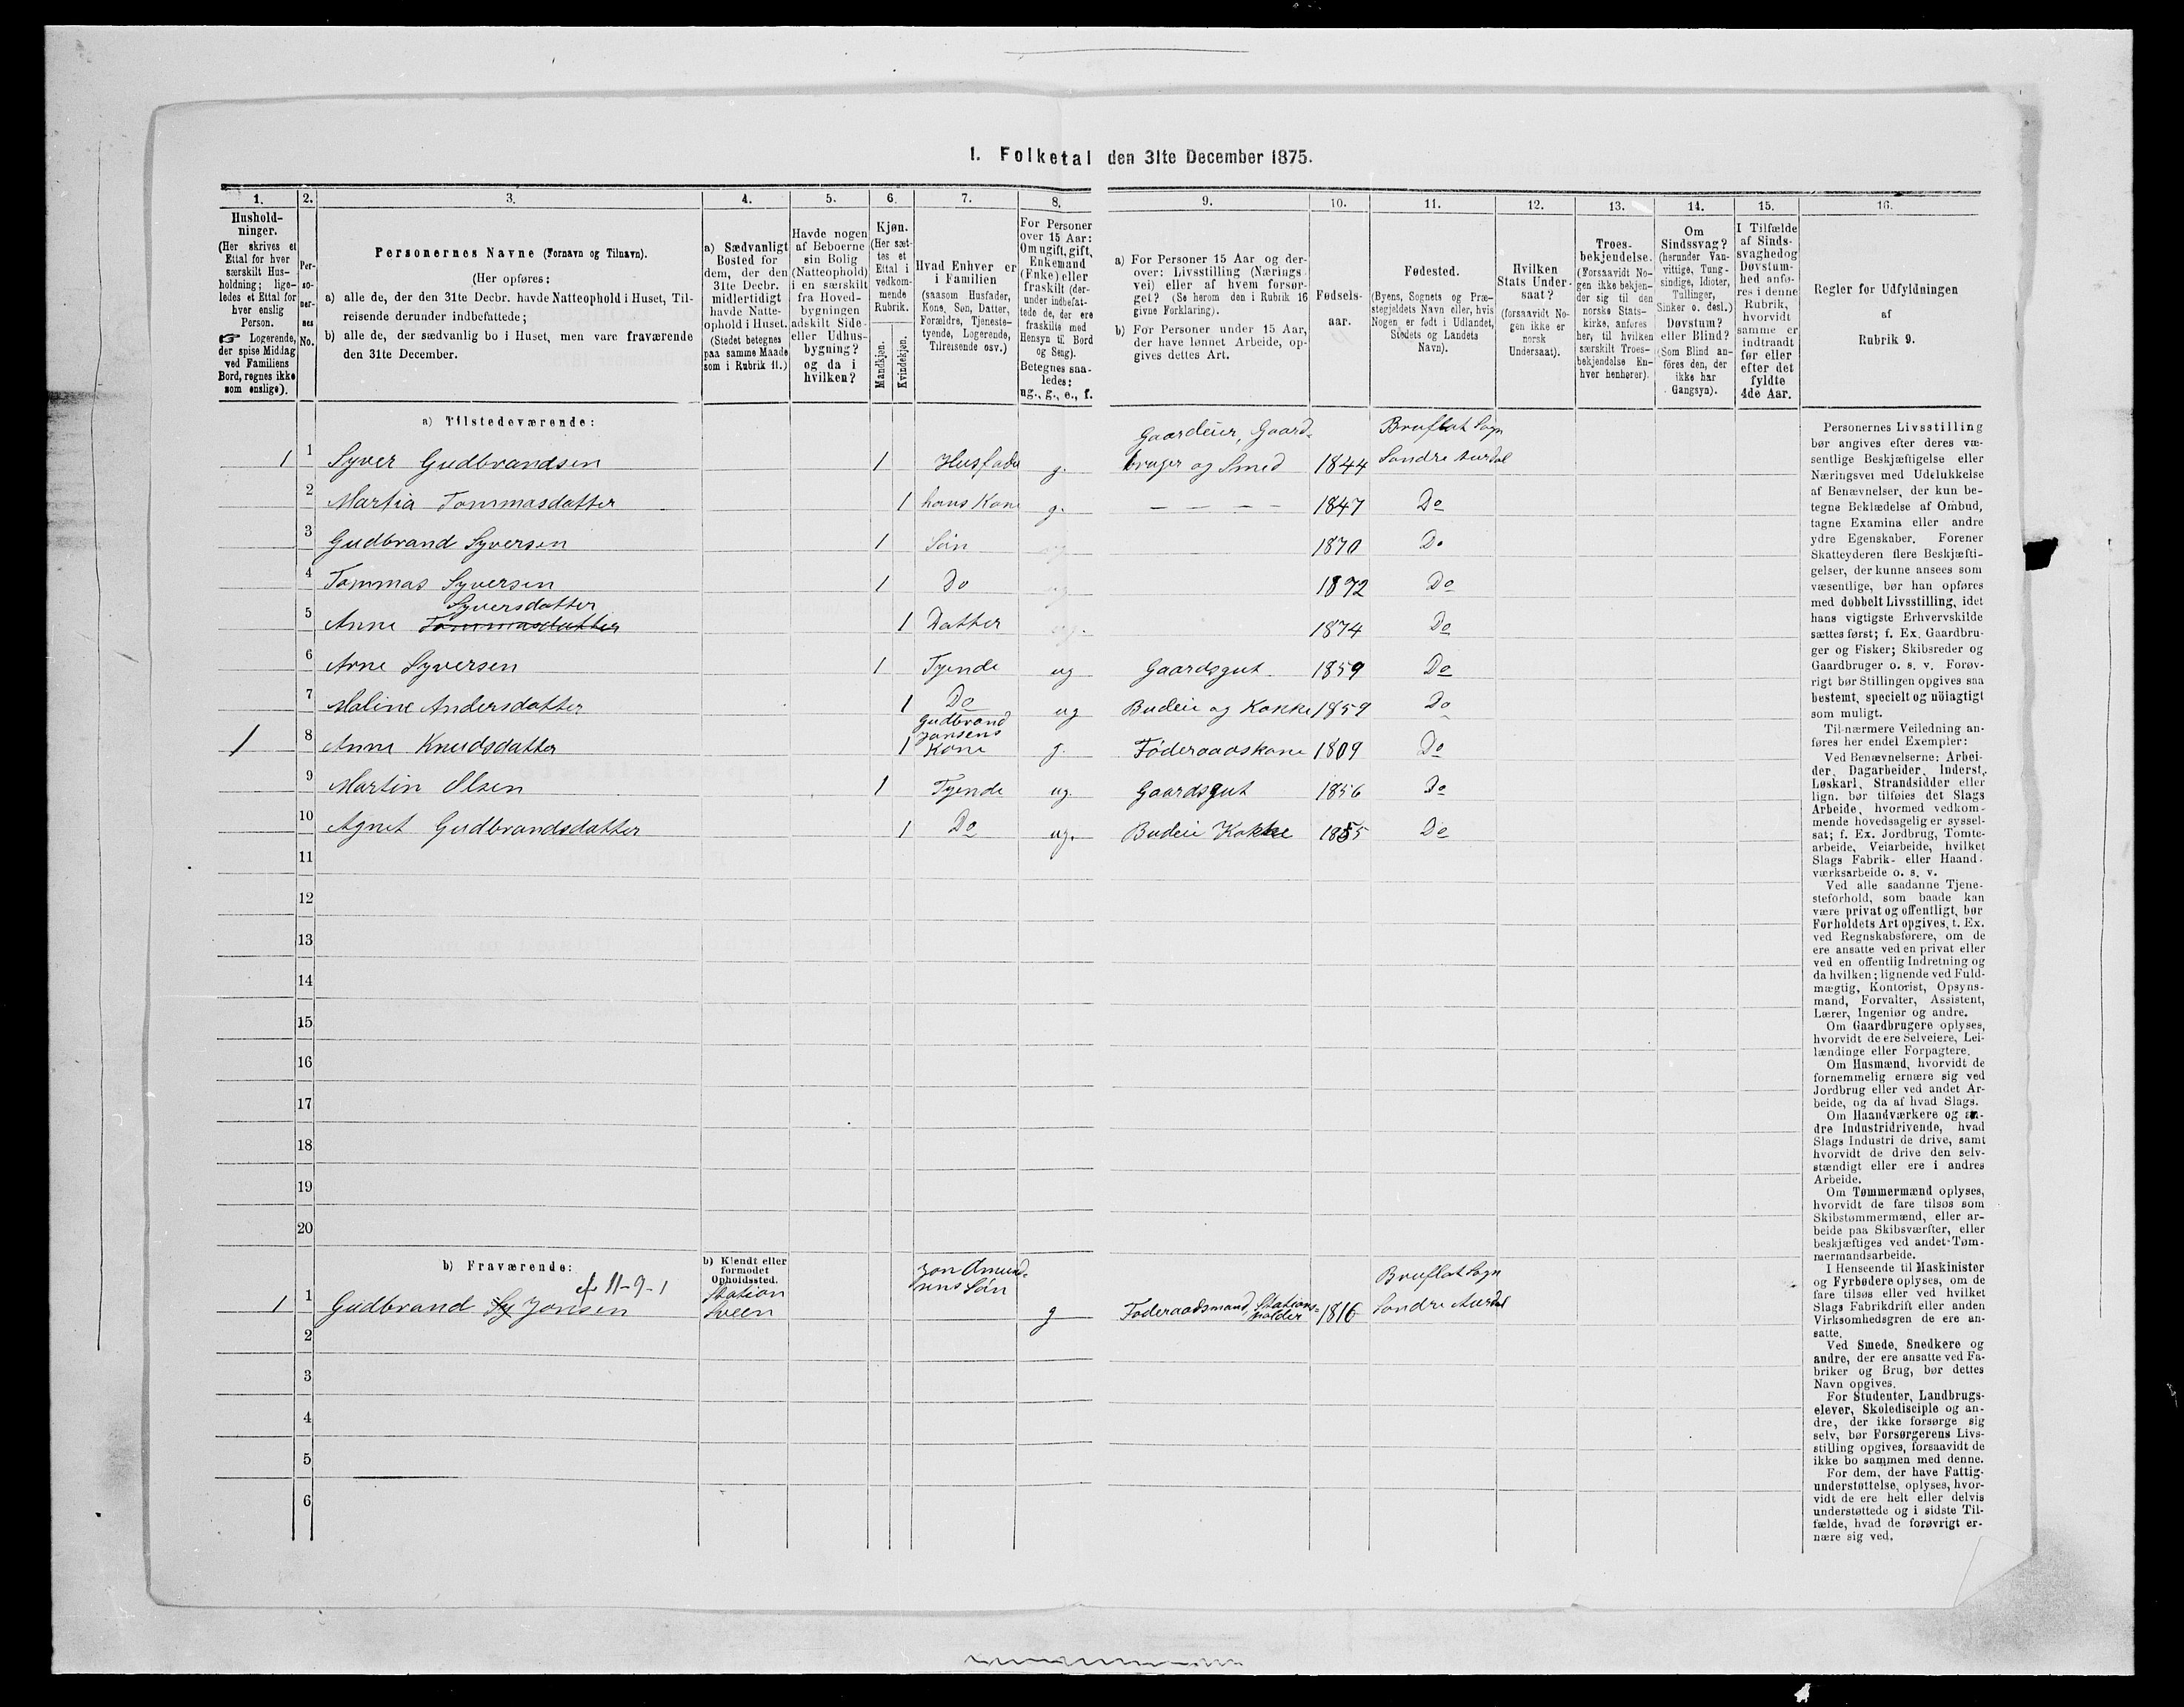 I. Folketal den 31te December 1875.
1.
Hushold-
ninger.
(Her skrives et
Ettal for hver
særskilt Hus-
holdning; lige-
ledes et Ettal for
hver enslig
Person.
☞ Logerende,
der spise Middag
ved Familiens
Bord, regnes ikke
som enslige).
2.
Per-
so-
ner-
nes
No.
3.
Personernes Navne (Fornavn og Tilnavn).
(Her opføres:
a) alle de, der den 31te Decbr. havde Natteophold i Huset, Til-
reisende derunder indbefattede;
b) alle de, der sædvanlig bo i Huset, men vare fraværende
den 31te December.
4.
a) Sædvanligt
Bosted for
dem, der den
31te Decbr.
midlertidigt
havde Natte-
ophold i Huset.
(Stedet betegnes
paa samme Maade
som i Rubrik 11.)
5.
Havde nogen
af Beboerne
sin Bolig
(Natteophold)
i en særskilt
fra Hoved-
bygningen
adskilt Side-
eller Udhus-
bygning?
og da i
hvilken?
6.
Kjøn.
(Her sæt-
tes et
Ettal i
vedkom-
mende
Rubrik.
Mandkjøn.
Kvindekjøn.
7.
Hvad Enhver er
i Familien
(saasom Husfader,
Kone, Søn, Datter,
Forældre, Tjeneste-
tyende, Logerende,
Tilreisende osv.)
8.
For Personer
over 15 Aar:
Om ugift, gift,
Enkemand
(Enke) eller
fraskilt (der-
under indbefat-
tede de, der ere
fraskilte med
Hensyn til Bord
og Seng).
Betegnes saa-
ledes:
ug., g., e., f.
9.
a) For Personer 15 Aar og der-
over: Livsstilling (Nærings-
vei) eller af hvem forsør-
get? (Se herom den i Rubrik 16
givne Forklaring).
b) For Personer under 15 Aar,
der have lønnet Arbeide, op-
gives dettes Art.
10.
Fødsels-
aar.
11.
Fødested.
(Byens, Sognets og Præ-
stegjeldets Navn eller, hvis
Nogen er født i Udlandet,
Stedets og Landets
Navn).
12.
Hvilken
Stats Under-
saat?
(forsaavidt No-
gen ikke er
norsk
Undersaat).
13.
Troes-
bekjendelse.
(Forsaavidt No-
gen ikke bekjen-
der sig til den
norske Stats-
kirke, anføres
her, til hvilken
særskilt Troes-
bekjendelse En-
hver henhører).
14.
Om
Sindssvag?
(herunder Van-
vittige, Tung-
sindige, Idioter,
Tullinger,
Sinker o. desl.)
Døvstum?
eller Blind?
(Som Blind an-
föres den, der
ikke har
Gangsyn).
15.
I Tilfælde
af Sinds-
svaghed og
Døvstum-
hed anfø-
res i denne
Rubrik,
hvorvidt
samme er
indtraadt
før eller
efter det
fyldte
4de Aar.
16.
Regler for Udfyldningen
af
Rubrik 9.
a) Tilstedeværende:
Gaardeier, Gaard- Bruflat Sogn
1 1 Syver Gudbrandsen 1 Husfader g. bruger og Smed 1844 Søndre Aurdal
2 Martia Tommasdatter 1 hans Kone g. — — — — 1847 Do
3 Gudbrand Syversen 1 Søn 1870 Do
4 Tommas Syversen 1 Do 1872 Do
Syversdatter
5 Anne Tommasdatter 1 Datter 1874 Do
6 Arne Syversen 1 Tyende ug Gaardsgut 1859 Do
7 Maline Andersdatter 1 Do ug Budeie og Kokke 1859 Do
Gudbrand
Jonsens
1 8 Anne Knudsdatter 1 Kone g. Føderaadskone 1809 Do
9 Martin Olsen 1 Tyende ug Gaardsgut 1856 Do
10 Agnet Gudbrandsdatter 1 Do ug. Budeie Kokke 1855 Do
11
12
13
14
15
16
17
18
19
20
b) Fraværende:
b) Kjendt eller
formodet
Opholdssted.
11-9-1
Station Jon Amund- Bruflat Sogn
sens Søn
1 1 Gudbrand Sy Jonsen Sveen g Føderaadsmand, Stations- 1816 Søndre Aurdal
holder
2
3
4
5
6
Personernes Livsstilling
bør angives efter deres væ-
sentlige Beskjæftigelse eller
Næringsvei med Udelukkelse
af Benævnelser, der kun be-
tegne Beklædelse af Ombud,
tagne Examina eller andre
ydre Egenskaber. Forener
Skatteyderen flere Beskjæfti-
gelser, der kunne ansees som
væsentlige, bør han opføres
med dobbelt Livsstilling, idet
hans vigtigste Erhvervskilde
sættes først; f. Ex. Gaardbru-
ger og Fisker; Skibsreder og
Gaardbruger o. s. v. Forøv-
rigt bør Stillingen opgives saa
bestemt, specielt og nöiagtigt
som muligt.
Til nærmere Veiledning an-
føres her endel Exempler:
Ved Benævnelserne: Arbei-
der, Dagarbeider, Inderst,
Løskarl, Strandsidder eller
lign. bør tilføies det Slags
Arbeide, hvormed vedkom-
mende hovedsagelig er syssel-
sat; f. Ex. Jordbrug, Tomte-
arbeide, Veiarbeide, hvilket
Slags Fabrik- eller Haand-
værksarbeide o. s. v.
Ved alle saadanne Tjene-
steforhold, som baade kan
være privat og offentligt, bør
Forholdets Art opgives, t. Ex.
ved Regnskabsførere, om de
ere ansatte ved en privat eller
ved en offentlig Indretning og
da hvilken; lignende ved Fuld-
mægtig, Kontorist, Opsyns-
mand, Forvalter, Assistent,
Lærer, Ingeniør og andre.
Om Gaardbrugere oplyses,
hvorvidt de ere Selveiere, Lei-
lændinge eller Forpagtere.
Om Husmænd, hvorvidt de
fornemmelig ernære sig ved
Jordbrug eller ved andet Ar-
beide, og da af hvad Slags.
Om Haandværkere og an-
dre Industridrivende, hvad
Slags Industri de drive, samt
hvorvidt de drive den selv-
stændigt eller ere i andres
Arbeide.
Om Tømmermænd oplyses,
hvorvidt de fare tilsøs som
Skibstømmermænd, eller ar-
beide paa Skibsværfter, eller
beskjæftiges ved andet Tøm-
mermandsarbeide.
I Henseende til Maskinister
og Fyrbødere oplyses, om de
fare tilsøs eller ved hvilket
Slags Fabrikdrift eller anden
Virksomhedsgren de ere an-
satte.
Ved Smede, Snedkere og
andre, der ere ansatte ved Fa-
briker og Brug, bør dettes
Navn opgives.
For Studenter, Landbrugs-
elever, Skoledisciple og an-
dre, der ikke forsørge sig
selv, bør Forsørgerens Livs-
stilling opgives, forsaavidt de
ikke bo sammen med denne.
For dem, der have Fattig-
understøttelse, oplyses, hvor-
vidt de ere helt eller delvis
understøttede og i sidste Til-
fælde, hvad de forøvrigt er-
nære sig ved.